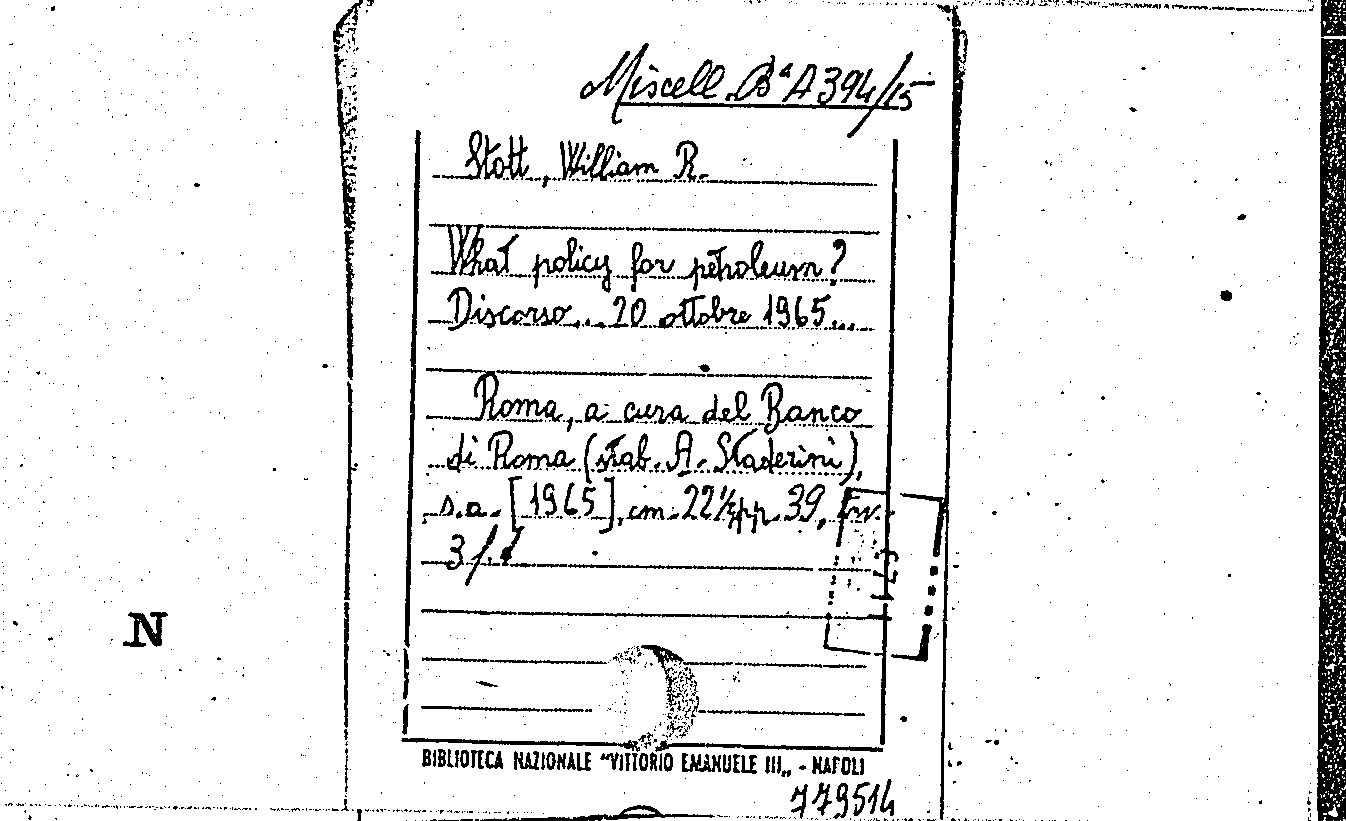 Miscell. Bª A 394/15
Stott, William R.
What policy for petroleum?
Discorso... 20 ottobre 1965...
Roma, a cura del Banco
di Roma (stab. A. Staderini),
s.a. [1965], cm. 22½ pp. 39,
N
BIBLIOTECA NAZIONALE "VITTORIO EMANUELE III„ - NAPOLI
779514